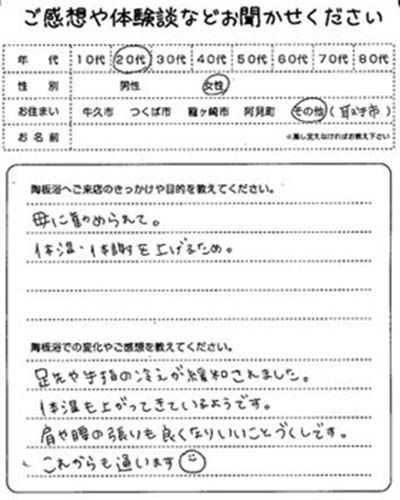 ご感想や体験談などお聞かせください
年代 10代 20代 30代 40代 50代 60代 70代 80代
性別 男性 女性
お住まい 牛久市 つくば市 龍ヶ崎市 阿見町 その他(取手市)
お名前 ※差し支えなければお教え下さい
陶板浴へご来店のきっかけや目的を教えてください。
母に勧められて。
体温・体謝を上げるため。
陶板浴での変化やご感想を教えてください。
足先や手指の冷えが緩和されました。
体温も上がってきているようです。
肩や腰の張りも良くなりいいことづくしです。
これからも通います